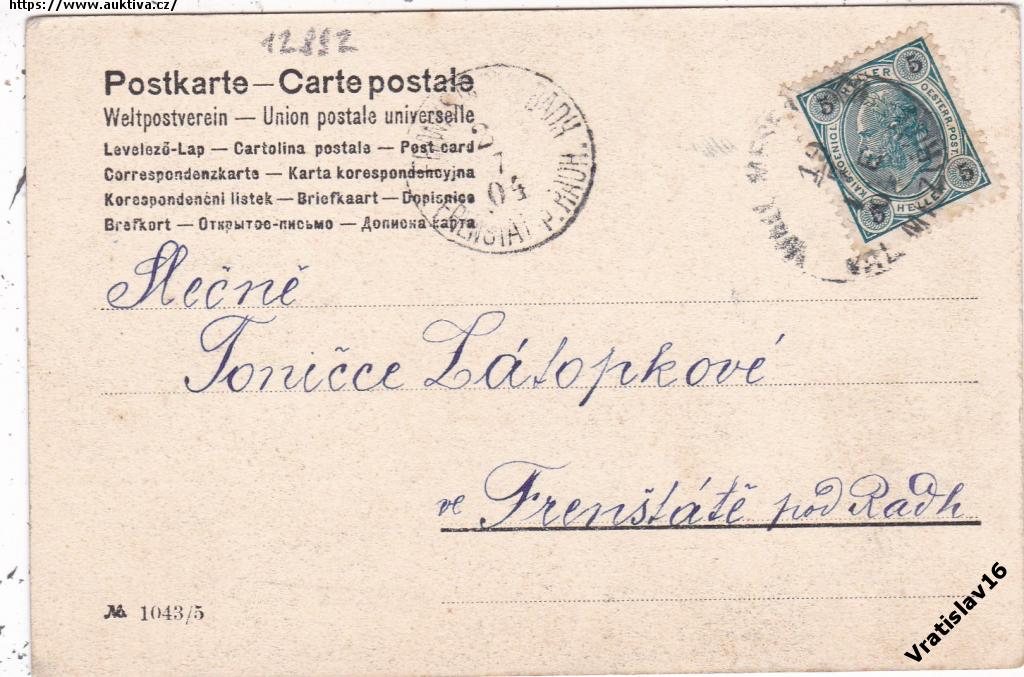 https://www.auktiva.cz/
12892
Postkarte — Carte postale
Weltpostverein — Union postale universelle
Levelező-Lap — Cartolina postale — Post card
Correspondenzkarte — Karta korespondencyjna
Korespondenční listek — Briefkaart — Dopisnice
Brefkort — Открытое-письмо — Дописна карта
2 7 04
P. RADH.
5 HELLER 5
OESTERR. POST.
5 HELLER 5
Slečně
Toničce Látopkové
ve Frenštátě pod Radh
№ 1043/5
Vratislav16